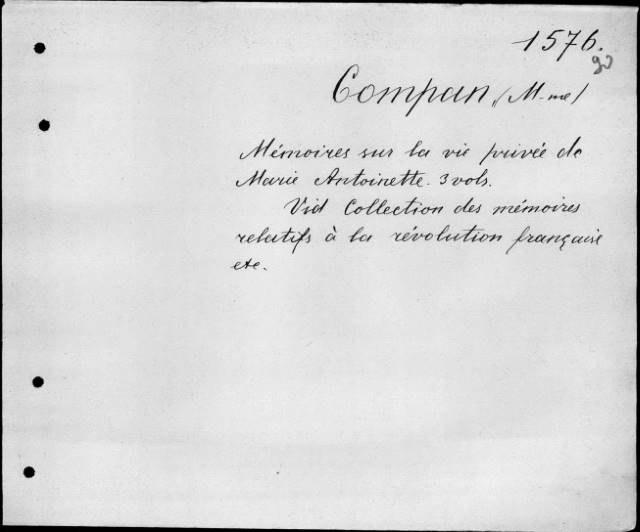 1576.
90
Compan, (M-me)
Mémoires sur la vie privée de
Marie Antoinette. 3 vols.
Vid Collection des mémoires
relatifs à la révolution française
etc.